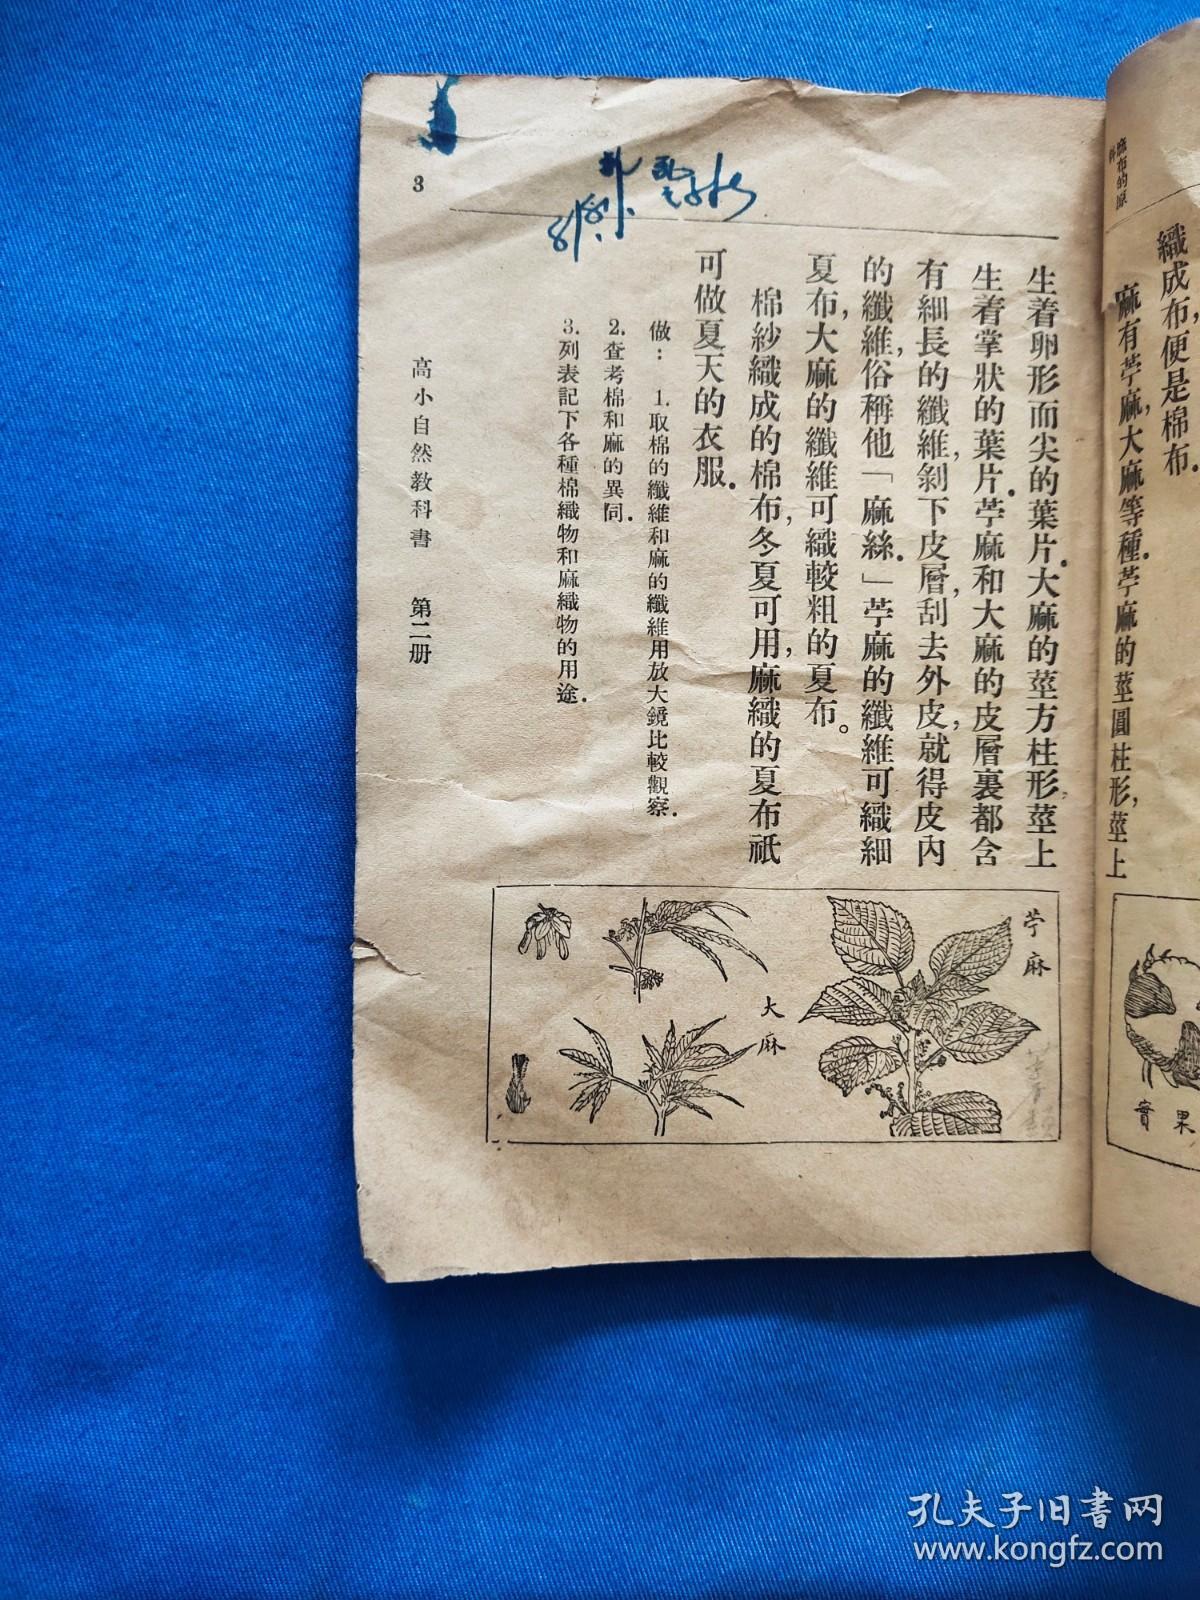 麻布的原料
織成布，便是棉布．
麻有苧麻，大麻等種．苧麻的莖圓柱形，莖上
實果
生着卵形而尖的葉片．大麻的莖方柱形，莖上
生着掌狀的葉片．苧麻和大麻的皮層裏都含
有細長的纖維，剝下皮層，刮去外皮，就得皮內
的纖維，俗稱他「麻絲．」苧麻的纖維可織細
夏布，大麻的纖維可織較粗的夏布。
棉紗織成的棉布，冬夏可用，麻織的夏布祇
可做夏天的衣服．
做： 1. 取棉的纖維和麻的纖維用放大鏡比較觀察．
2. 查考棉和麻的異同．
3. 列表記下各種棉織物和麻織物的用途．
苧麻
大麻
高小自然教科書 第二册
3
孔夫子旧書网
www.kongfz.com